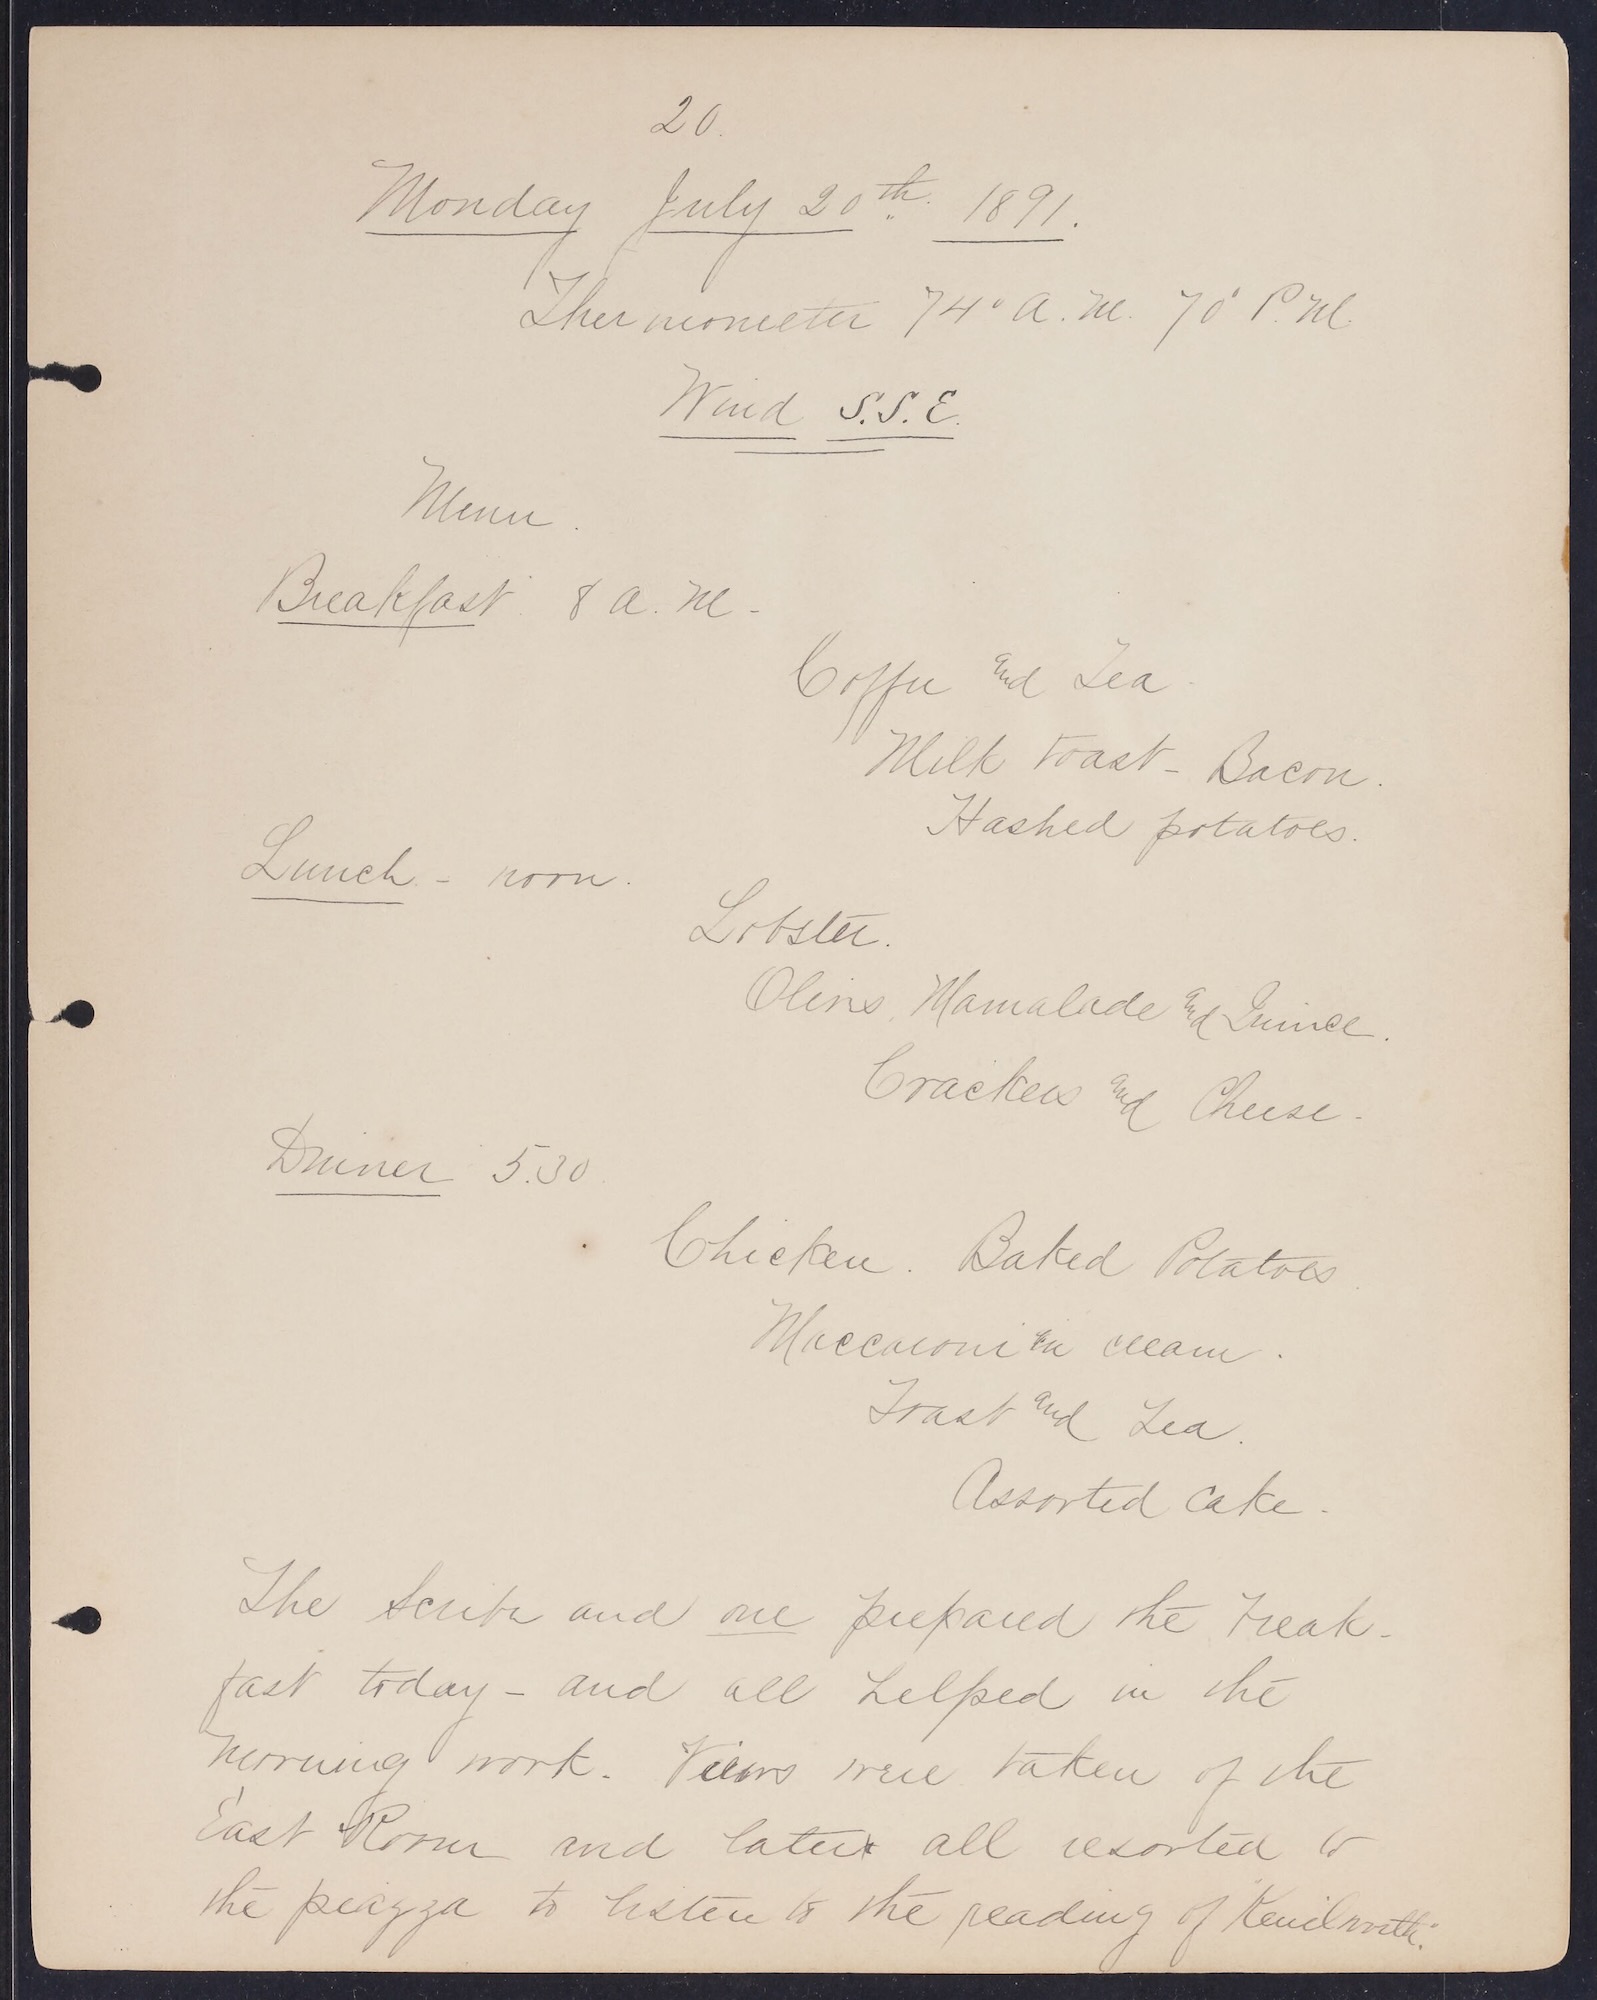 20.
Monday July 20th. 1891.
Thermometer 74° A.M. 70° P.M.
Wind S.S.E.
Menu.
Breakfast. 8 A.M-
Coffee and Tea-
Milk toast- Bacon.
Hashed potatoes.
Lunch- noon.
Lobster.
Olives, Mamalade and Quince.
Crackers and Cheese-
Dinner 5.30.
Chicken. Baked Potatoes.
Maccaroni in cream.
Toast and Tea.
Assorted cake-
The Scribe and one prepared the break-
fast today- and all helped in the
morning work. Views were taken of the
East Room and later all resorted to
the piazza to listen to the reading of "Kenilworth".